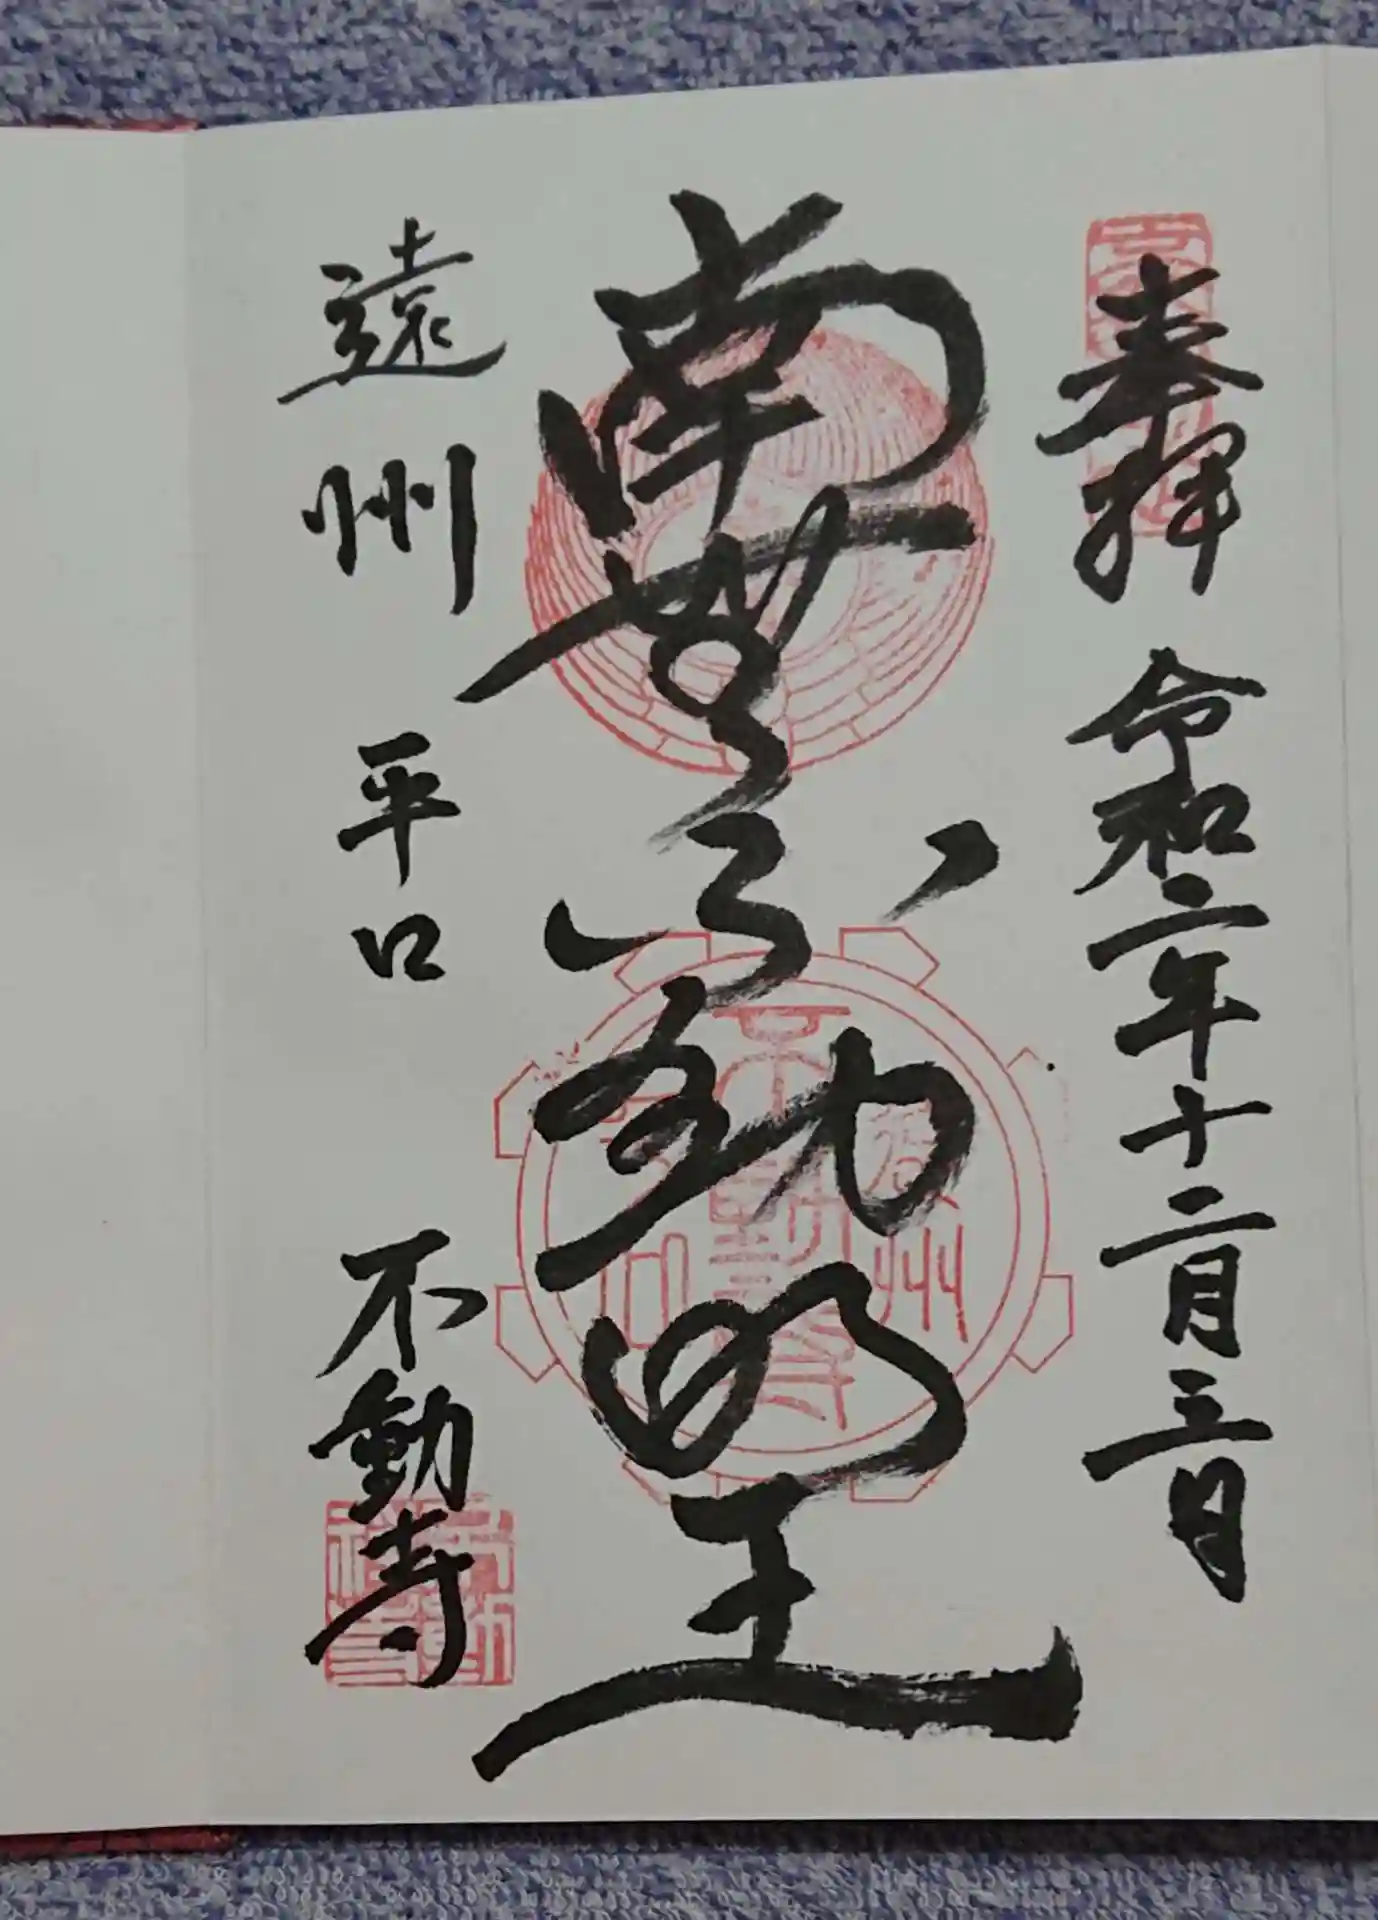 奉拝 令和二年十二月三日
南無不動明王
遠州 平口 不動寺